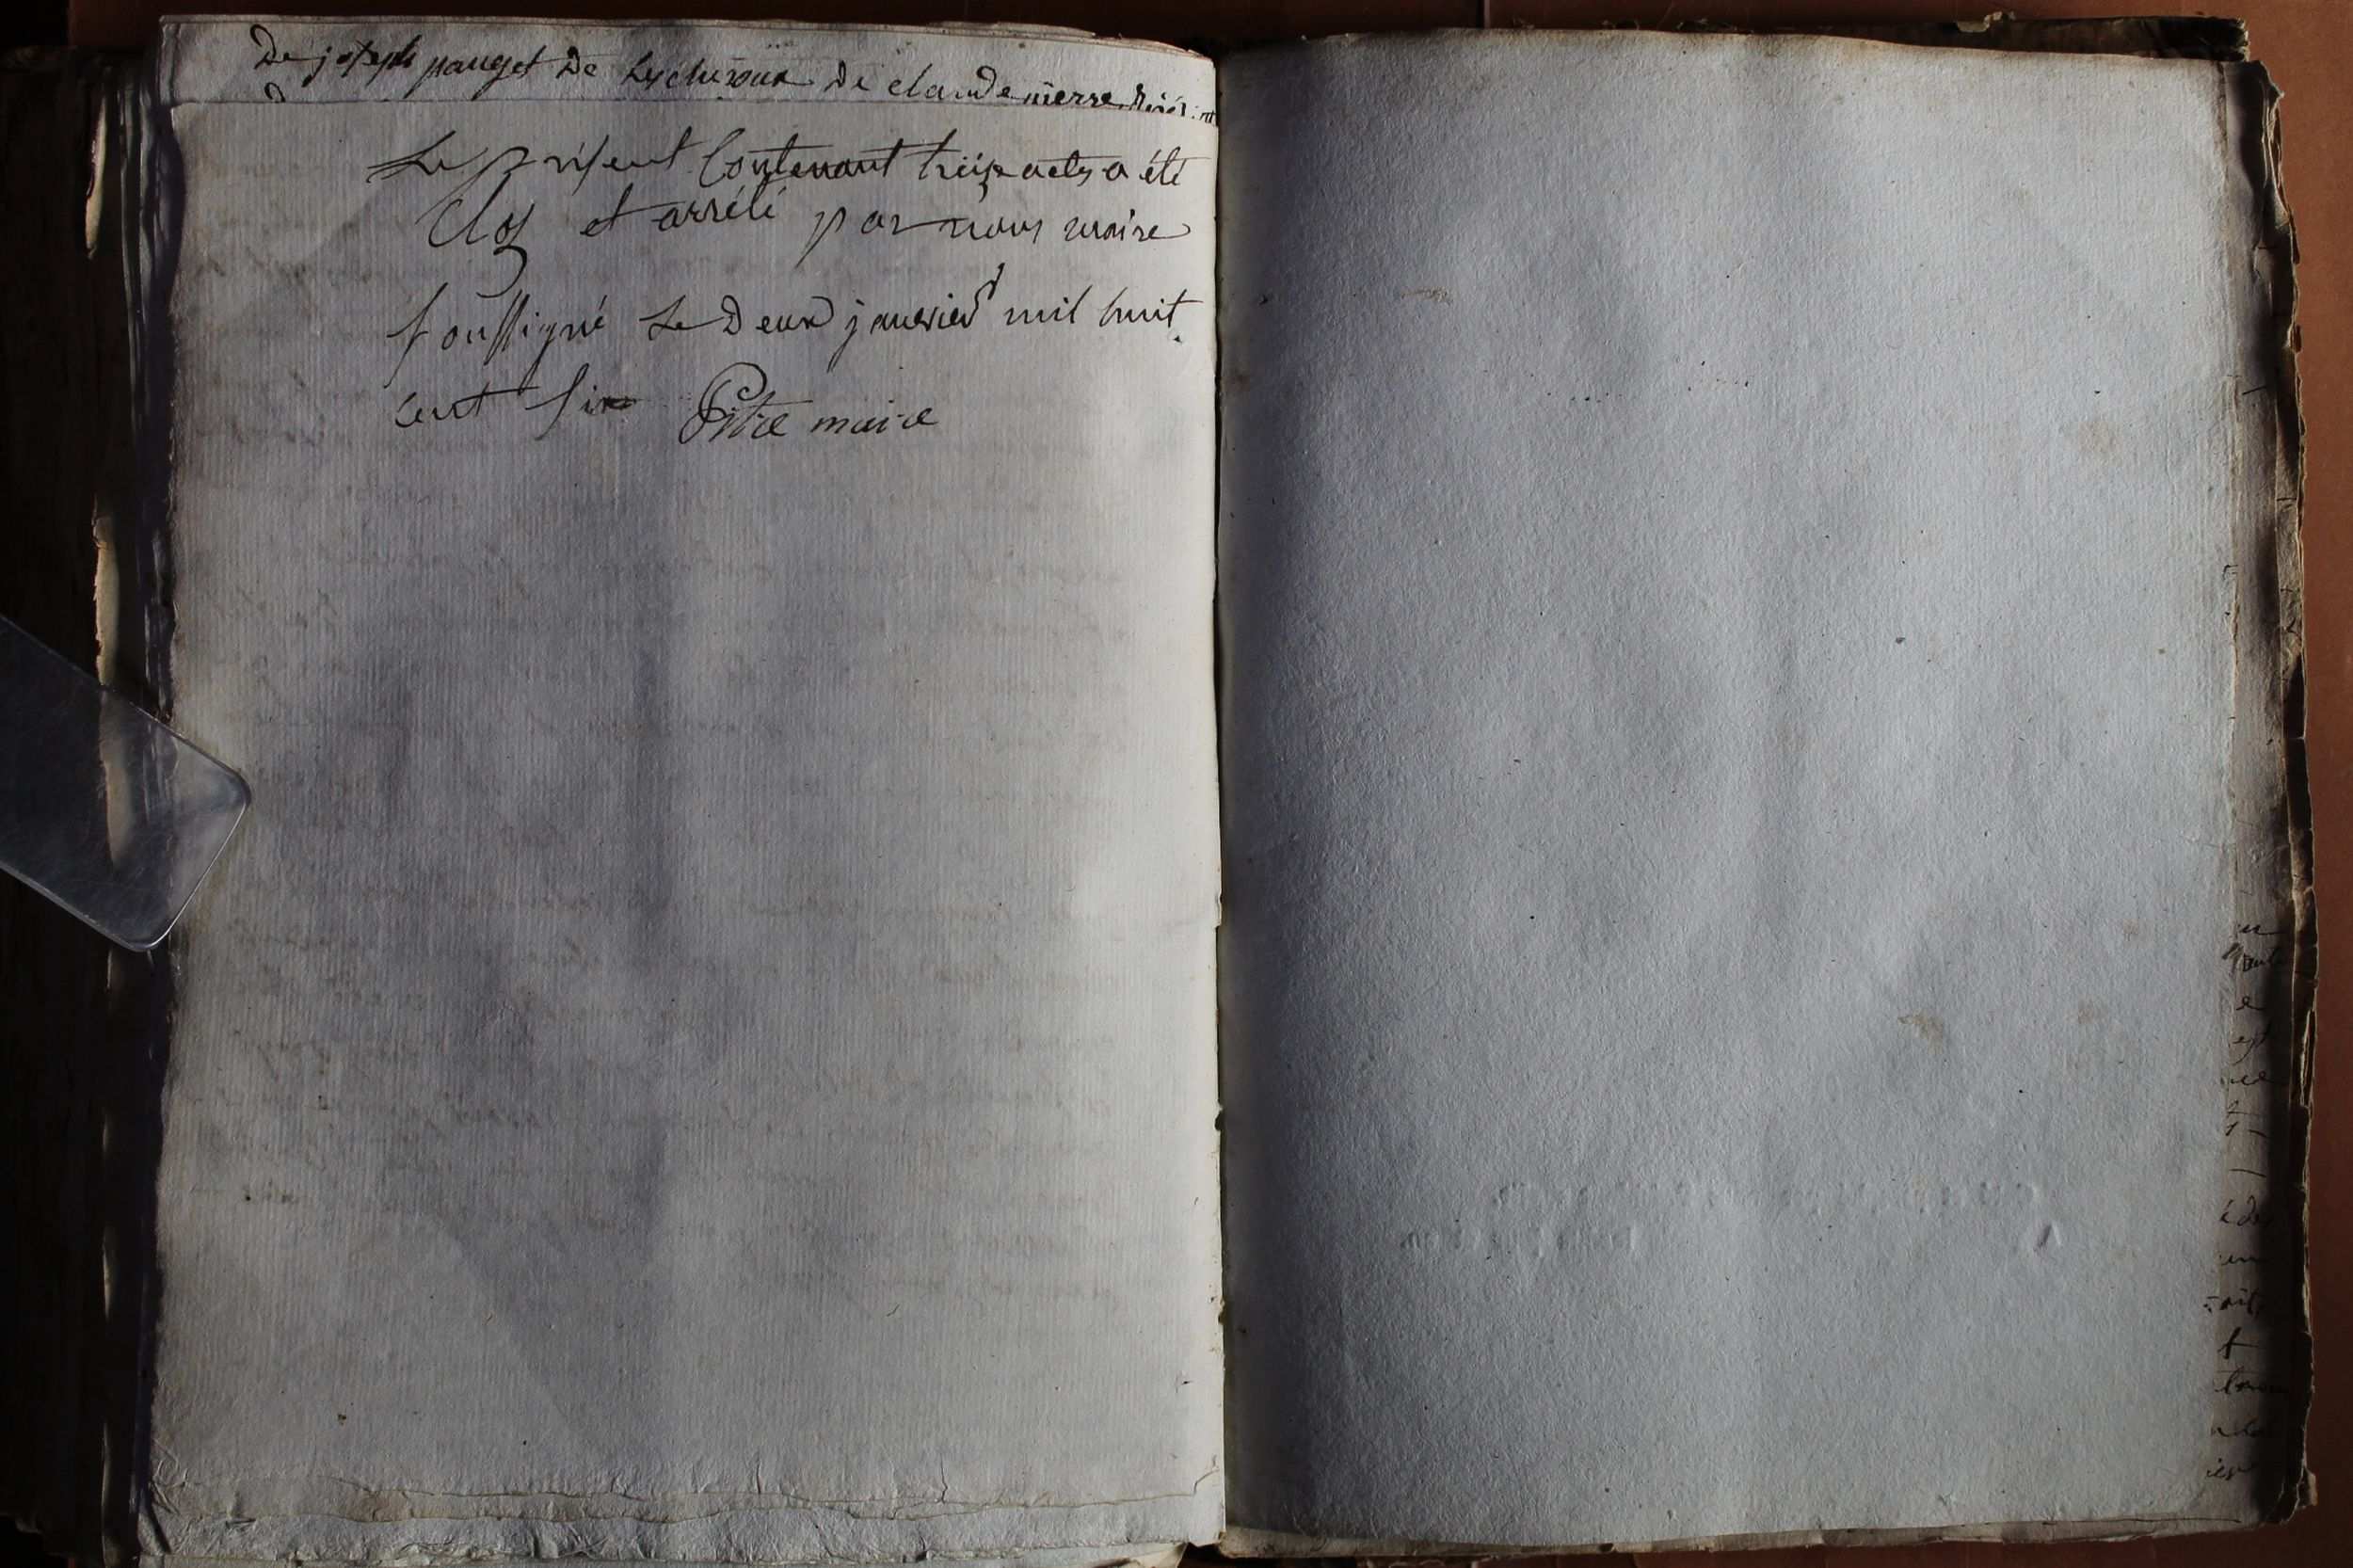 De joseph pauget De Lescheroux De claude pierre
Le présent Contenant treize actes a été
Clos et arrêté par nous maire
soussigné Le Deux janvier mil huit
cent six Pitre maire